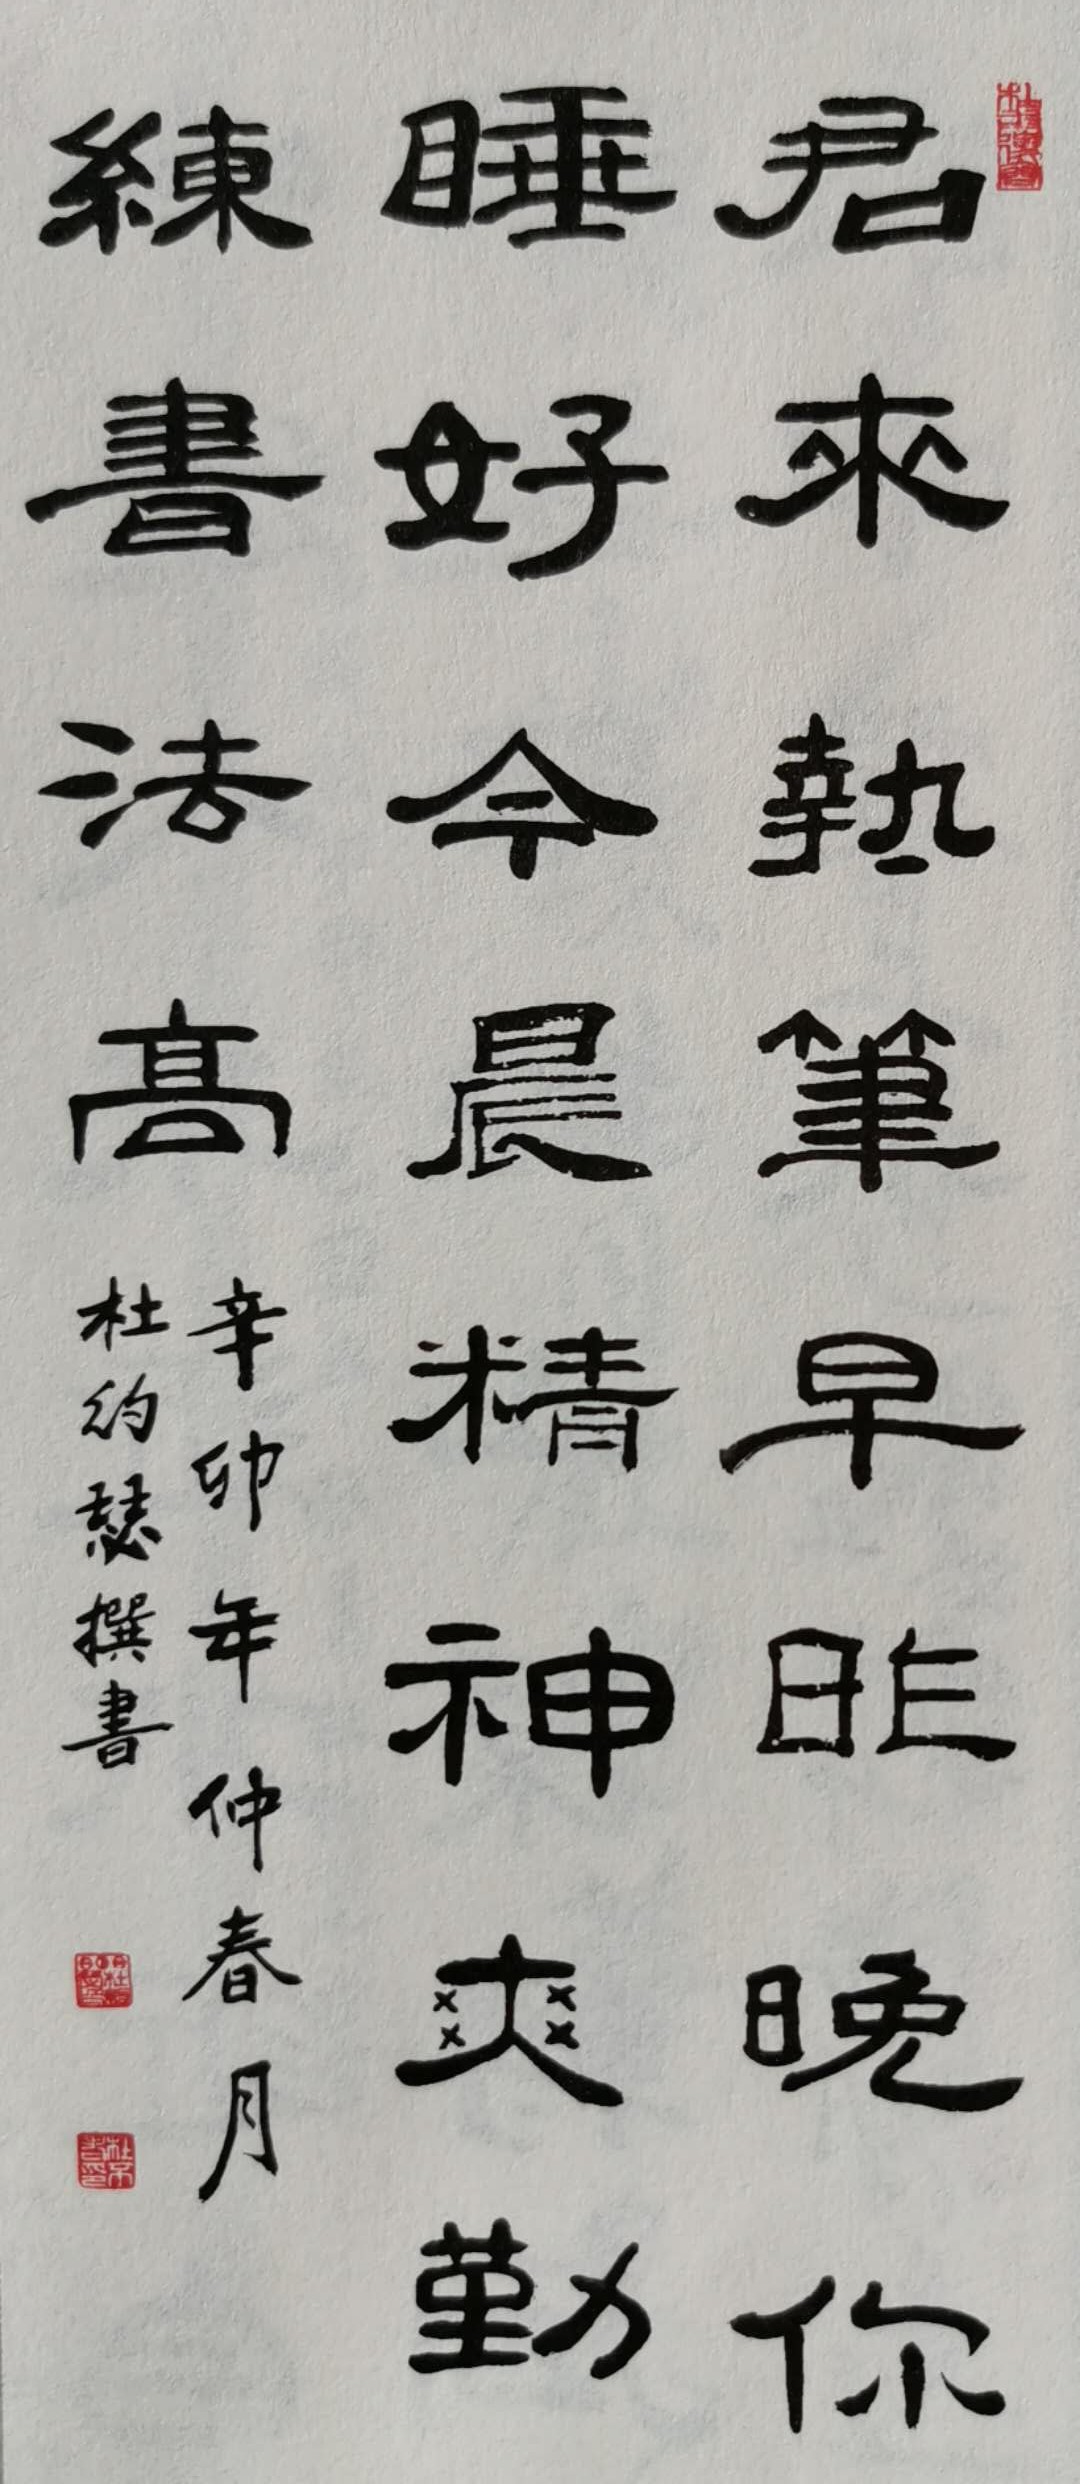 君來執筆早昨晚你
睡好今晨精神爽勤
練書法高
辛卯年仲春月
杜約瑟撰書